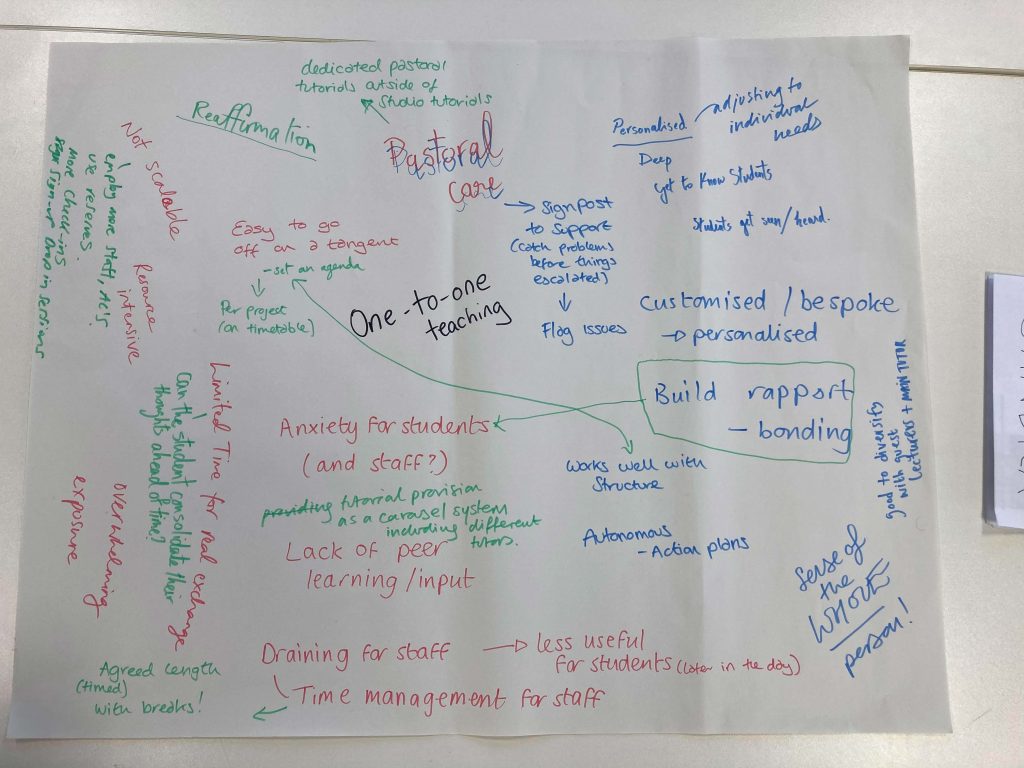 dedicated pastoral
tutorials outside of
studio tutorials
Reaffirmation
Pastoral
care
Personalised
adjusting to
individual
needs
Deep
get to know students
Students get seen/heard.
→ signpost
to support
(catch problems
before things
escalated)
Flag issues
Not scalable
employ more staff, AL's.
use reserves.
more check-ins
sign-up drop in sessions
Easy to go
off on a tangent
- set an agenda
Per project
(on timetable)
One-to-one
teaching
Resource
intensive
customised / bespoke
→ personalised
Build rapport
- bonding
good to diversify
with guest
lecturers + MAIN TUTOR
Limited Time for real exchange
can the student consolidate their
thoughts ahead of time?
Anxiety for students
(and staff?)
works well with
structure
providing tutorial provision
as a carasel system
including different
tutors.
overwhelming
exposure
Lack of peer
learning/input
Autonomous
- Action plans
Sense of
the
WHOLE
person!
Draining for staff → less useful
for students (later in the day)
Time management for staff
Agreed length
(timed)
with breaks!